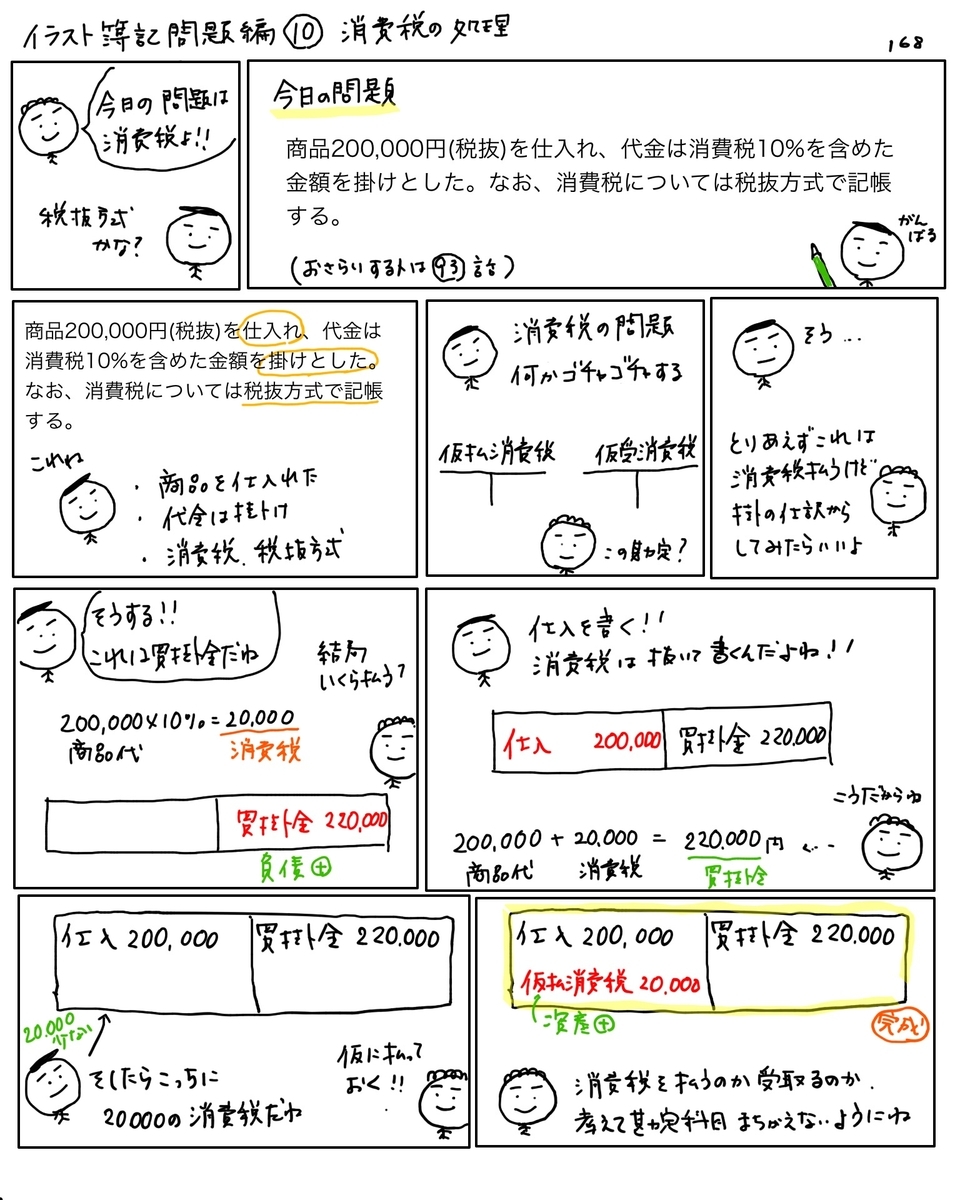 イラスト簿記問題編⑩ 消費税の処理
168
今日の問題は
消費税よ!!
税抜方式
かな?
今日の問題
商品200,000円(税抜)を仕入れ、代金は消費税10%を含めた
金額を掛けとした。なお、消費税については税抜方式で記帳
する。
(おさらいする人は 93 話)
がん
ばる
商品200,000円(税抜)を仕入れ、代金は
消費税10%を含めた金額を掛けとした。
なお、消費税については税抜方式で記帳
する。
これね
・商品を仕入れた
・代金は掛け
・消費税、税抜方式
消費税の問題
何かゴチャゴチャする
仮払消費税
仮受消費税
この勘定?
そう...
とりあえずこれは
消費税払うけど
掛の仕訳から
してみたらいいよ
そうする!!
これは買掛金だね
結局
いくら払う?
200,000×10%=20,000
商品代 消費税
買掛金 220,000
負債⊕
仕入を書く!!
消費税は抜いて書くんだよね!!
仕入 200,000 買掛金 220,000
こうだからね
200,000 + 20,000 = 220,000円 <---
商品代 消費税 買掛金
仕入 200,000 買掛金 220,000
20,000
そしたらこっちに
20000の消費税だね
仮に払って
おく!!
仕入 200,000 買掛金 220,000
仮払消費税 20,000
資産⊕
完成!
消費税を払うのか受取るのか、
考えて勘定科目まちがえないようにね